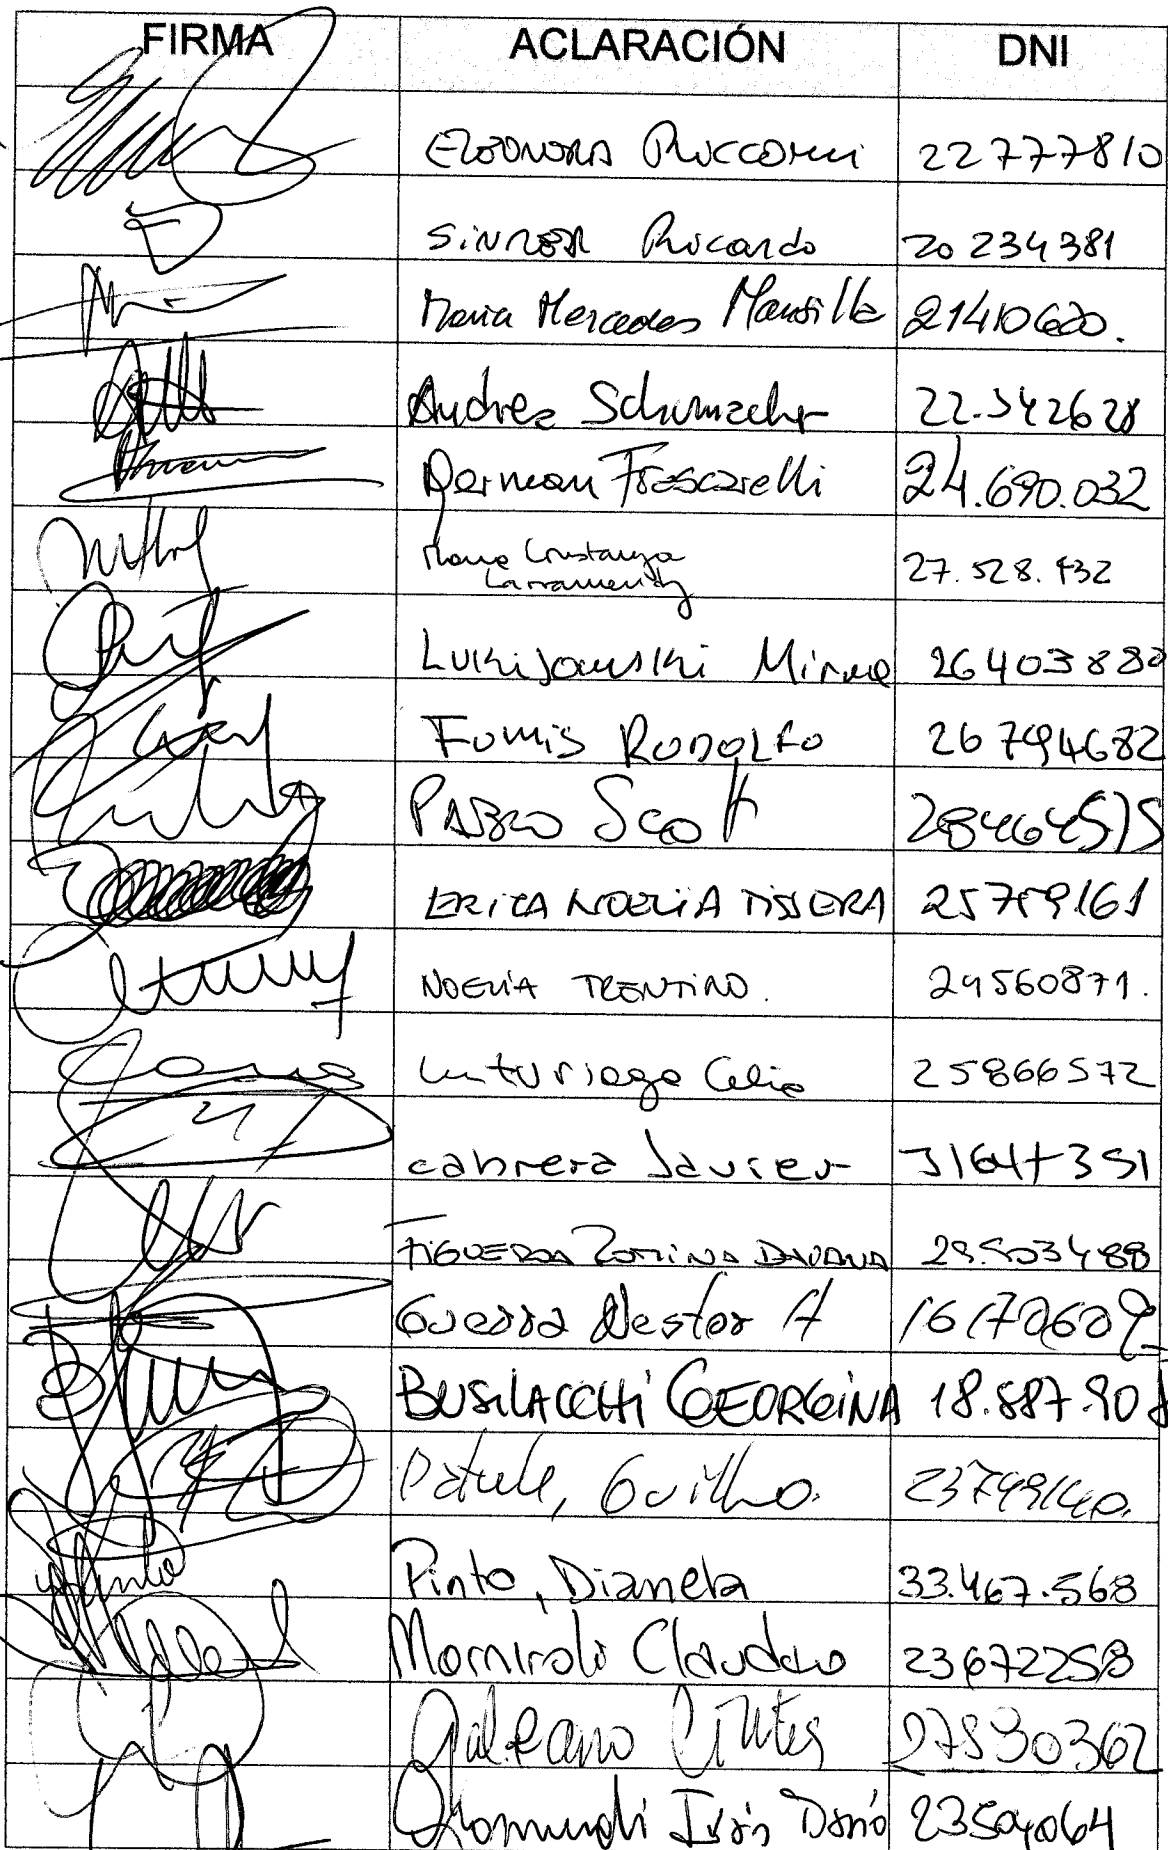 FIRMA ACLARACIÓN DNI
ELEONORA 22777810
SINNER Ricardo 20 234 381
Maria Mercedes Mansilla 21410620.
Andrés 22.342628
German Frescarelli 24.690.032
Maria Constanza 27.528.432
Larramendy
Mirna 26403880
Fumis RODOLFO 26794682
PABLO Scott 28464515
ERICA NOELIA TISSERA 25759161
NOELIA TRENTINO. 29560871.
Celia 25866572
cabrera Javier 31647351
FIGUEROA ROMINA DAIANA
Guerra Nestor A 16170609
BUSILACCHI GEORGINA 18.887.90
Guillmo. 23749140.
Pinto, Dianela 33.467.568
Claudio 23672258
Galeano 27530362
Iván Darío 23504064